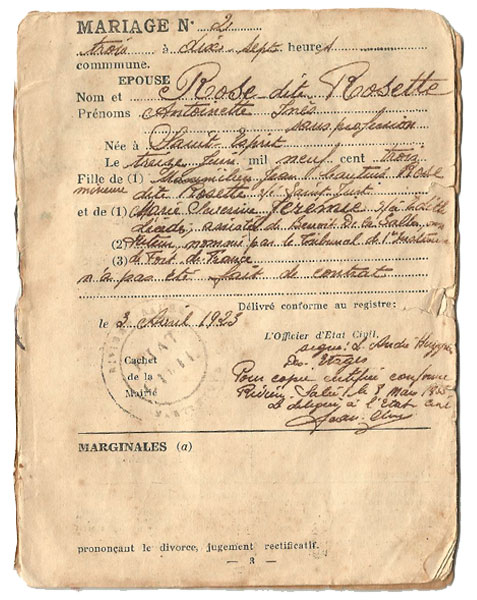 MARIAGE N° 2
trois à dix-sept heures
commmune.
EPOUSE
Nom et Rose dite Rosette
Prénoms Antoinette Inès
sans profession
Née à Saint Esprit
Le treize Juin mil neuf cent trois
Fille de (1) Maximilien Jean Rose
mineure dite Rosette
et de (1) Marie Séverine Jérémie
décédée, assistée de Benoit De la Salle
(2) tuteur nommé par le tribunal de 1ère Instance
(3) de Fort de France
n'a pas été fait de contrat
Délivré conforme au registre:
le 3 Avril 1923
L'Officier d'Etat Civil,
signé: L. André
Des Etages
Cachet
de la
Mairie
Pour copie certifiée conforme
Rivière-Salée, le 8 mars 1955
Le délégué à l'Etat civil
MARGINALES (a)
prononçant le divorce, jugement rectificatif.
— 3 —